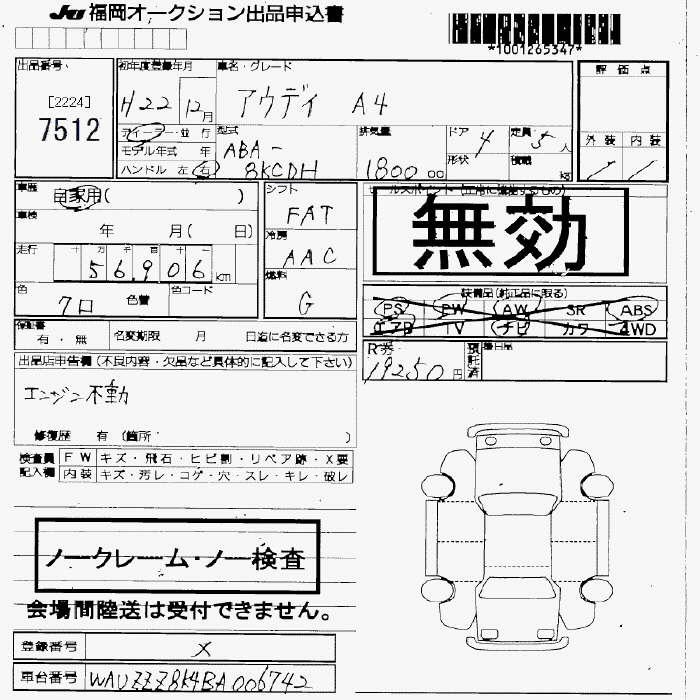 JU 福岡オークション出品申込書
*1001265347*
出品番号
[2224]
7512
初年度登録年月
H22 12月
車名・グレード
アウディ A4
評価点
外装 内装
ディーラー・並行
モデル年式 年
ハンドル 左 右
型式
ABA-
8KCDH
排気量
1800 cc
ドア 4
形状
定員 5人
積載 kg
車歴
自家用( )
車検
年 月( 日)
走行
十 万 千 百 十 一
56,906 km
色
クロ
色替
色コード
シフト
FAT
冷房
AAC
燃料
G
セールスポイント(正常に機能するもの)
無効
装備品(純正品に限る)
PS PW AW SR ABS
エアB TV ナビ カワ 4WD
保証書
有・無
名変期限 月 日迄に名変できる方
R券
19250円
預託済
出品店申告欄(不良内容・欠品など具体的に記入して下さい)
エンジン不動
修復歴 有 (箇所 )
検査員記入欄
FW キズ・飛石・ヒビ割・リペア跡・X要
内装 キズ・汚レ・コゲ・穴・スレ・キレ・破レ
ノークレーム・ノー検査
会場間陸送は受付できません。
登録番号 X
車台番号 WAUZZZ8K4BA006742